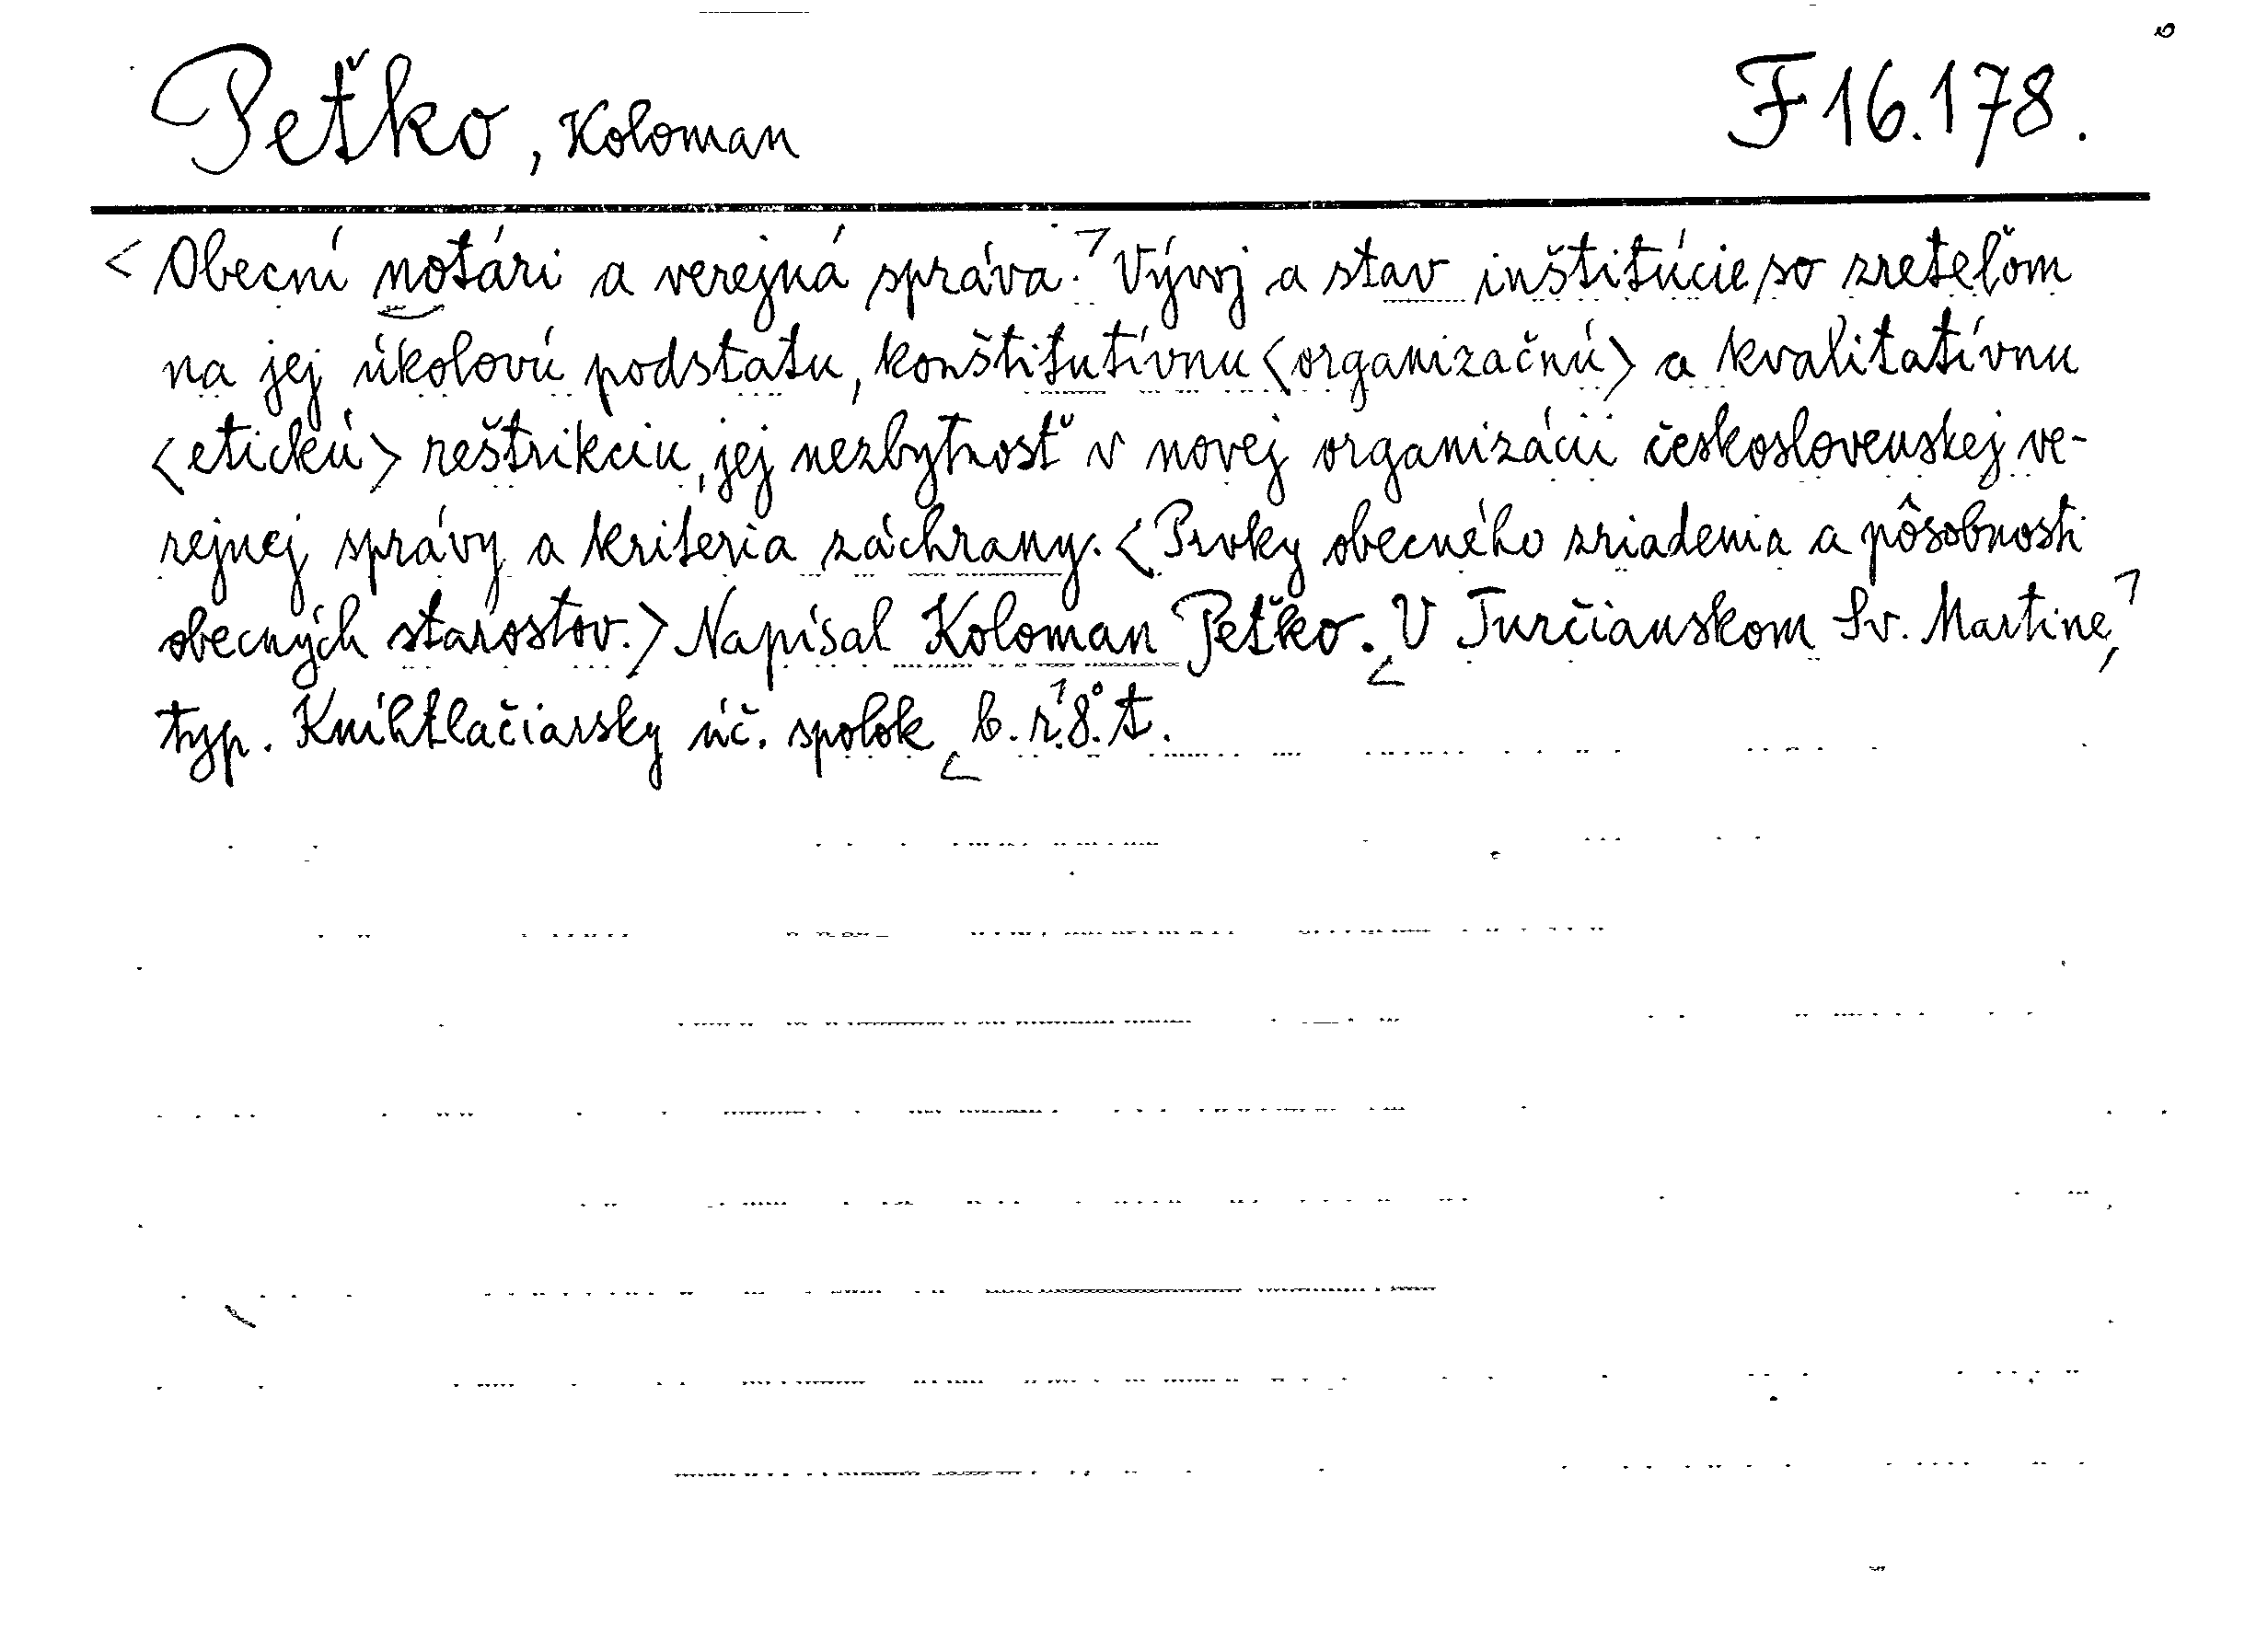 Peťko, Koloman F 16.178.
<Obecní notári a verejná správa.> Vývoj a stav inštitúcie so zreteľom
na jej úkolovú podstatu, konštitutívnu <organizačnú> a kvalitatívnu
<etickú> reštrikciu, jej nezbytnosť v novej organizácii československej ve-
rejnej správy a kriteria záchrany. <Prvky obecného zriadenia a pôsobnosti
obecných starostov.> Napísal Koloman Peťko. <V Turčianskom Sv. Martine,>
typ. Kníhtlačiarsky úč. spolok <b. r.> 8°. t.